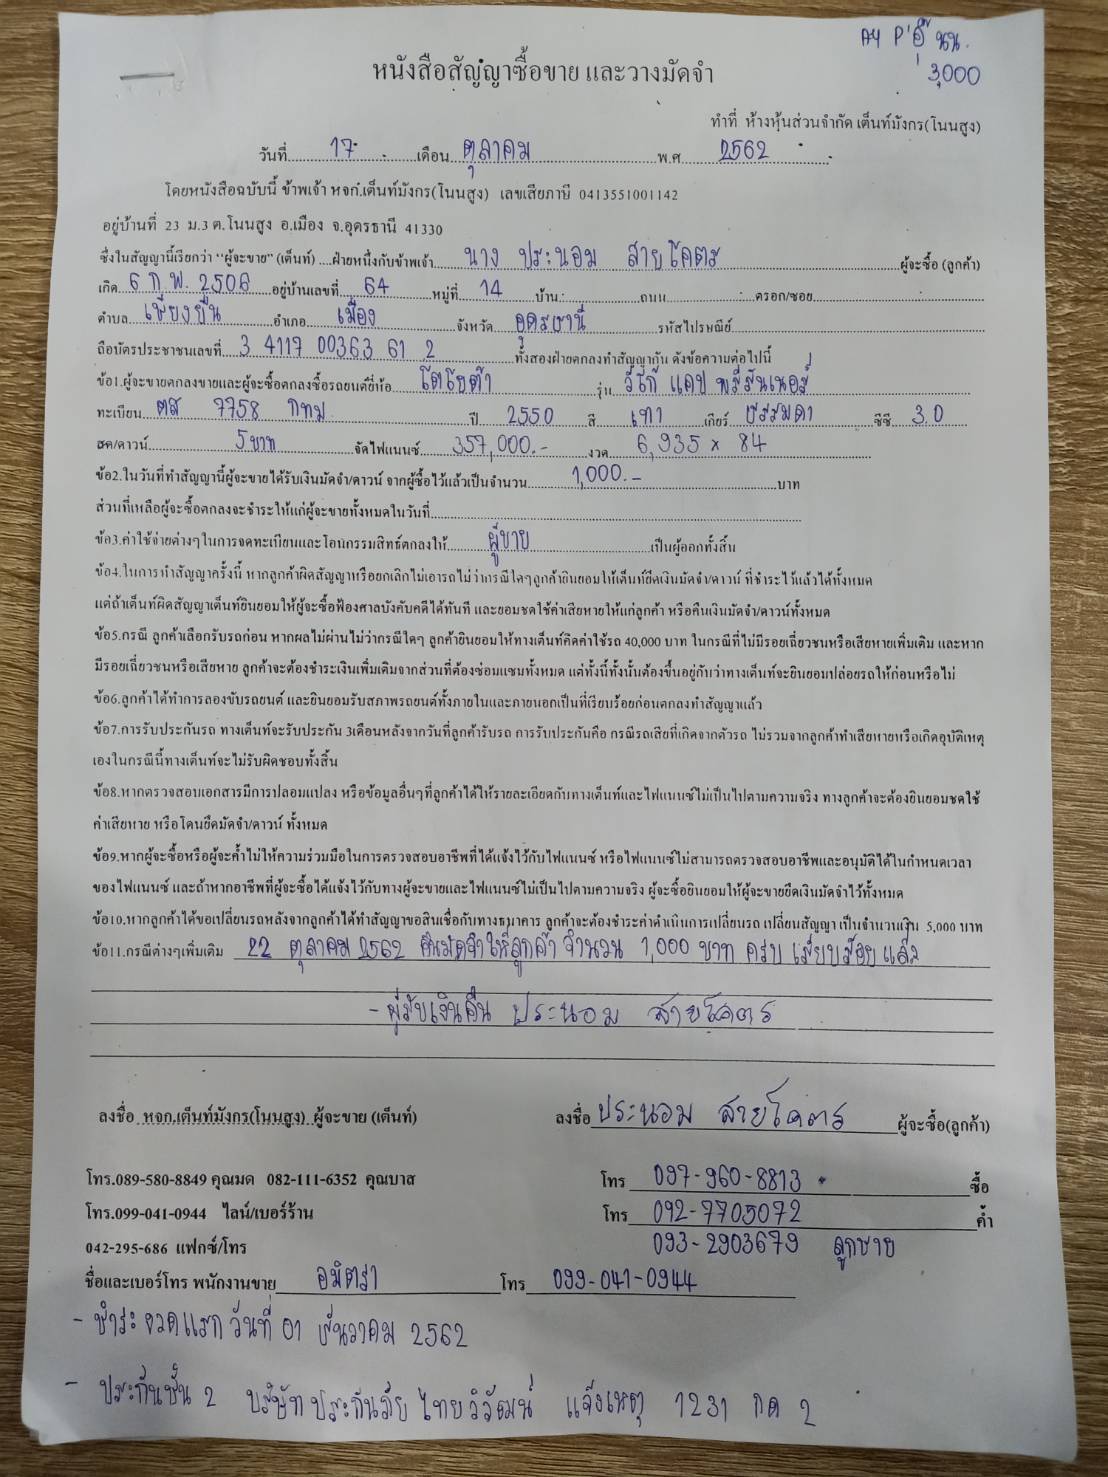 A4 P'อู๊ นน.
3,000
หนังสือสัญญาซื้อขาย และวางมัดจำ
ทำที่ ห้างหุ้นส่วนจำกัด เต็นท์มังกร(โนนสูง)
วันที่ 17 เดือน ตุลาคม พ.ศ 2562
โดยหนังสือฉบับนี้ ข้าพเจ้า หจก.เต็นท์มังกร(โนนสูง) เลขเสียภาษี 0413551001142
อยู่บ้านที่ 23 ม.3 ต.โนนสูง อ.เมือง จ.อุดรธานี 41330
ซึ่งในสัญญานี้เรียกว่า "ผู้จะขาย" (เต็นท์) ....ฝ่ายหนึ่งกับข้าพเจ้า นาง ประนอม สายโคตร ผู้จะซื้อ (ลูกค้า)
เกิด 6 ก.พ. 2506 อยู่บ้านเลขที่ 64 หมู่ที่ 14 บ้าน ถนน ตรอก/ซอย
ตำบล เชียงยืน อำเภอ เมือง จังหวัด อุดรธานี รหัสไปรษณีย์
ถือบัตรประชาชนเลขที่ 3 4117 00363 61 2 ทั้งสองฝ่ายตกลงทำสัญญากัน ดังข้อความต่อไปนี้
ข้อ1.ผู้จะขายตกลงขายและผู้จะซื้อตกลงซื้อรถยนต์ยี่ห้อ โตโยต้า รุ่น วีโก้ แคป พรีรันเนอร์
ทะเบียน ตส 7758 กทม ปี 2550 สี เทา เกียร์ ธรรมดา ซีซี 3.0
สด/ดาวน์ 5 บาท จัดไฟแนนซ์ 357,000.- งวด 6,935 x 84
ข้อ2.ในวันที่ทำสัญญานี้ผู้จะขายได้รับเงินมัดจำ/ดาวน์ จากผู้ซื้อไว้แล้วเป็นจำนวน 1,000.- บาท
ส่วนที่เหลือผู้จะซื้อตกลงจะชำระให้แก่ผู้จะขายทั้งหมดในวันที่
ข้อ3.ค่าใช้จ่ายต่างๆในการจดทะเบียนและโอนกรรมสิทธ์ตกลงให้ ผู้ขาย เป็นผู้ออกทั้งสิ้น
ข้อ4.ในการทำสัญญาครั้งนี้ หากลูกค้าผิดสัญญาหรือยกเลิกไม่เอารถไม่ว่ากรณีใดๆลูกค้ายินยอมให้เต็นท์ยึดเงินมัดจำ/ดาวน์ ที่ชำระไว้แล้วได้ทั้งหมด
แต่ถ้าเต็นท์ผิดสัญญาเต็นท์ยินยอมให้ผู้จะซื้อฟ้องศาลบังคับคดีได้ทันที และยอมชดใช้ค่าเสียหายให้แก่ลูกค้า หรือคืนเงินมัดจำ/ดาวน์ทั้งหมด
ข้อ5.กรณี ลูกค้าเลือกรับรถก่อน หากผลไม่ผ่านไม่ว่ากรณีใดๆ ลูกค้ายินยอมให้ทางเต็นท์คิดค่าใช้รถ 40,000 บาท ในกรณีที่ไม่มีรอยเฉี่ยวชนหรือเสียหายเพิ่มเติม และหาก
มีรอยเฉี่ยวชนหรือเสียหาย ลูกค้าจะต้องชำระเงินเพิ่มเติมจากส่วนที่ต้องซ่อมแซมทั้งหมด แต่ทั้งนี้ทั้งนั้นต้องขึ้นอยู่กับว่าทางเต็นท์จะยินยอมปล่อยรถให้ก่อนหรือไม่
ข้อ6.ลูกค้าได้ทำการลองขับรถยนต์ และยินยอมรับสภาพรถยนต์ทั้งภายในและภายนอกเป็นที่เรียบร้อยก่อนตกลงทำสัญญาแล้ว
ข้อ7.การรับประกันรถ ทางเต็นท์จะรับประกัน 3เดือนหลังจากวันที่ลูกค้ารับรถ การรับประกันคือ กรณีรถเสียที่เกิดจากตัวรถ ไม่รวมจากลูกค้าทำเสียหายหรือเกิดอุบัติเหตุ
เองในกรณีนี้ทางเต็นท์จะไม่รับผิดชอบทั้งสิ้น
ข้อ8.หากตรวจสอบเอกสารมีการปลอมแปลง หรือข้อมูลอื่นๆที่ลูกค้าได้ให้รายละเอียดกับทางเต็นท์และไฟแนนซ์ไม่เป็นไปตามความจริง ทางลูกค้าจะต้องยินยอมชดใช้
ค่าเสียหาย หรือโดนยึดมัดจำ/ดาวน์ ทั้งหมด
ข้อ9.หากผู้จะซื้อหรือผู้จะค้ำไม่ให้ความร่วมมือในการตรวจสอบอาชีพที่ได้แจ้งไว้กับไฟแนนซ์ หรือไฟแนนซ์ไม่สามารถตรวจสอบอาชีพและอนุมัติได้ในกำหนดเวลา
ของไฟแนนซ์ และถ้าหากอาชีพที่ผู้จะซื้อได้แจ้งไว้กับทางผู้จะขายและไฟแนนซ์ไม่เป็นไปตามความจริง ผู้จะซื้อยินยอมให้ผู้จะขายยึดเงินมัดจำไว้ทั้งหมด
ข้อ10.หากลูกค้าได้ขอเปลี่ยนรถหลังจากลูกค้าได้ทำสัญญาขอสินเชื่อกับทางธนาคาร ลูกค้าจะต้องชำระค่าดำเนินการเปลี่ยนรถ เปลี่ยนสัญญา เป็นจำนวนเงิน 5,000 บาท
ข้อ11.กรณีต่างๆเพิ่มเติม 22 ตุลาคม 2562 คืนมัดจำให้ลูกค้า จำนวน 1,000 บาท ครบ เรียบร้อย แล้ว
- ผู้รับเงินคืน ประนอม สายโคตร
ลงชื่อ หจก.เต็นท์มังกร(โนนสูง) ผู้จะขาย (เต็นท์) ลงชื่อ ประนอม สายโคตร ผู้จะซื้อ(ลูกค้า)
โทร.089-580-8849 คุณมด 082-111-6352 คุณบาส โทร 097-960-8813 ซื้อ
โทร.099-041-0944 ไลน์/เบอร์ร้าน โทร 092-7705072 ค้ำ
042-295-686 แฟกซ์/โทร 093-2903679 ลูกชาย
ชื่อและเบอร์โทร พนักงานขาย อมิตรา โทร 099-041-0944
- ชำระ งวดแรก วันที่ 01 ธันวาคม 2562
- ประกันชั้น 2 บริษัท ประกันภัย ไทยวิวัฒน์ แจ้งเหตุ 1231 กด 2